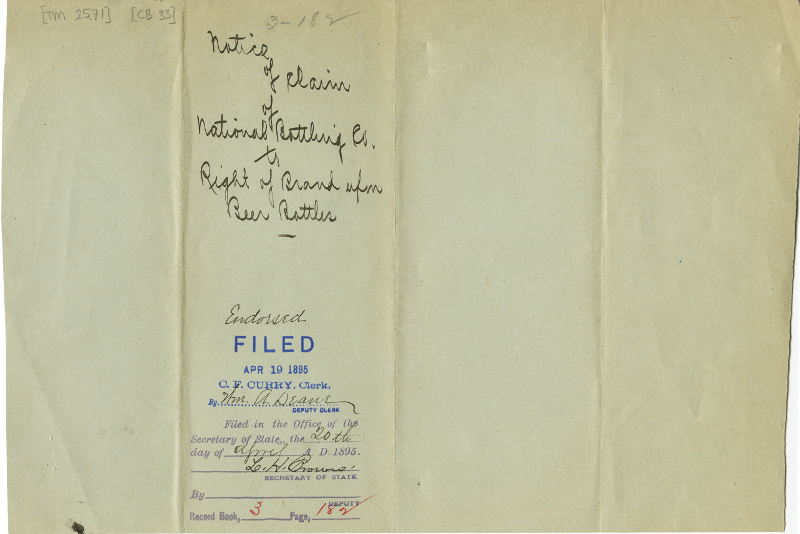 [TM 2571] [CB 33]
3-182
Notice
of Claim
of
National Bottling Co.
to
Right of Brand upon
Beer Bottles
Endorsed
FILED
APR 19 1895
C. F. CURRY, Clerk.
By Wm. A. Deane
DEPUTY CLERK
Filed in the Office of the
Secretary of State, the 20th
day of April A. D. 1895.
L. H. Brown
SECRETARY OF STATE
By
DEPUTY
Record Book, 3 Page, 182